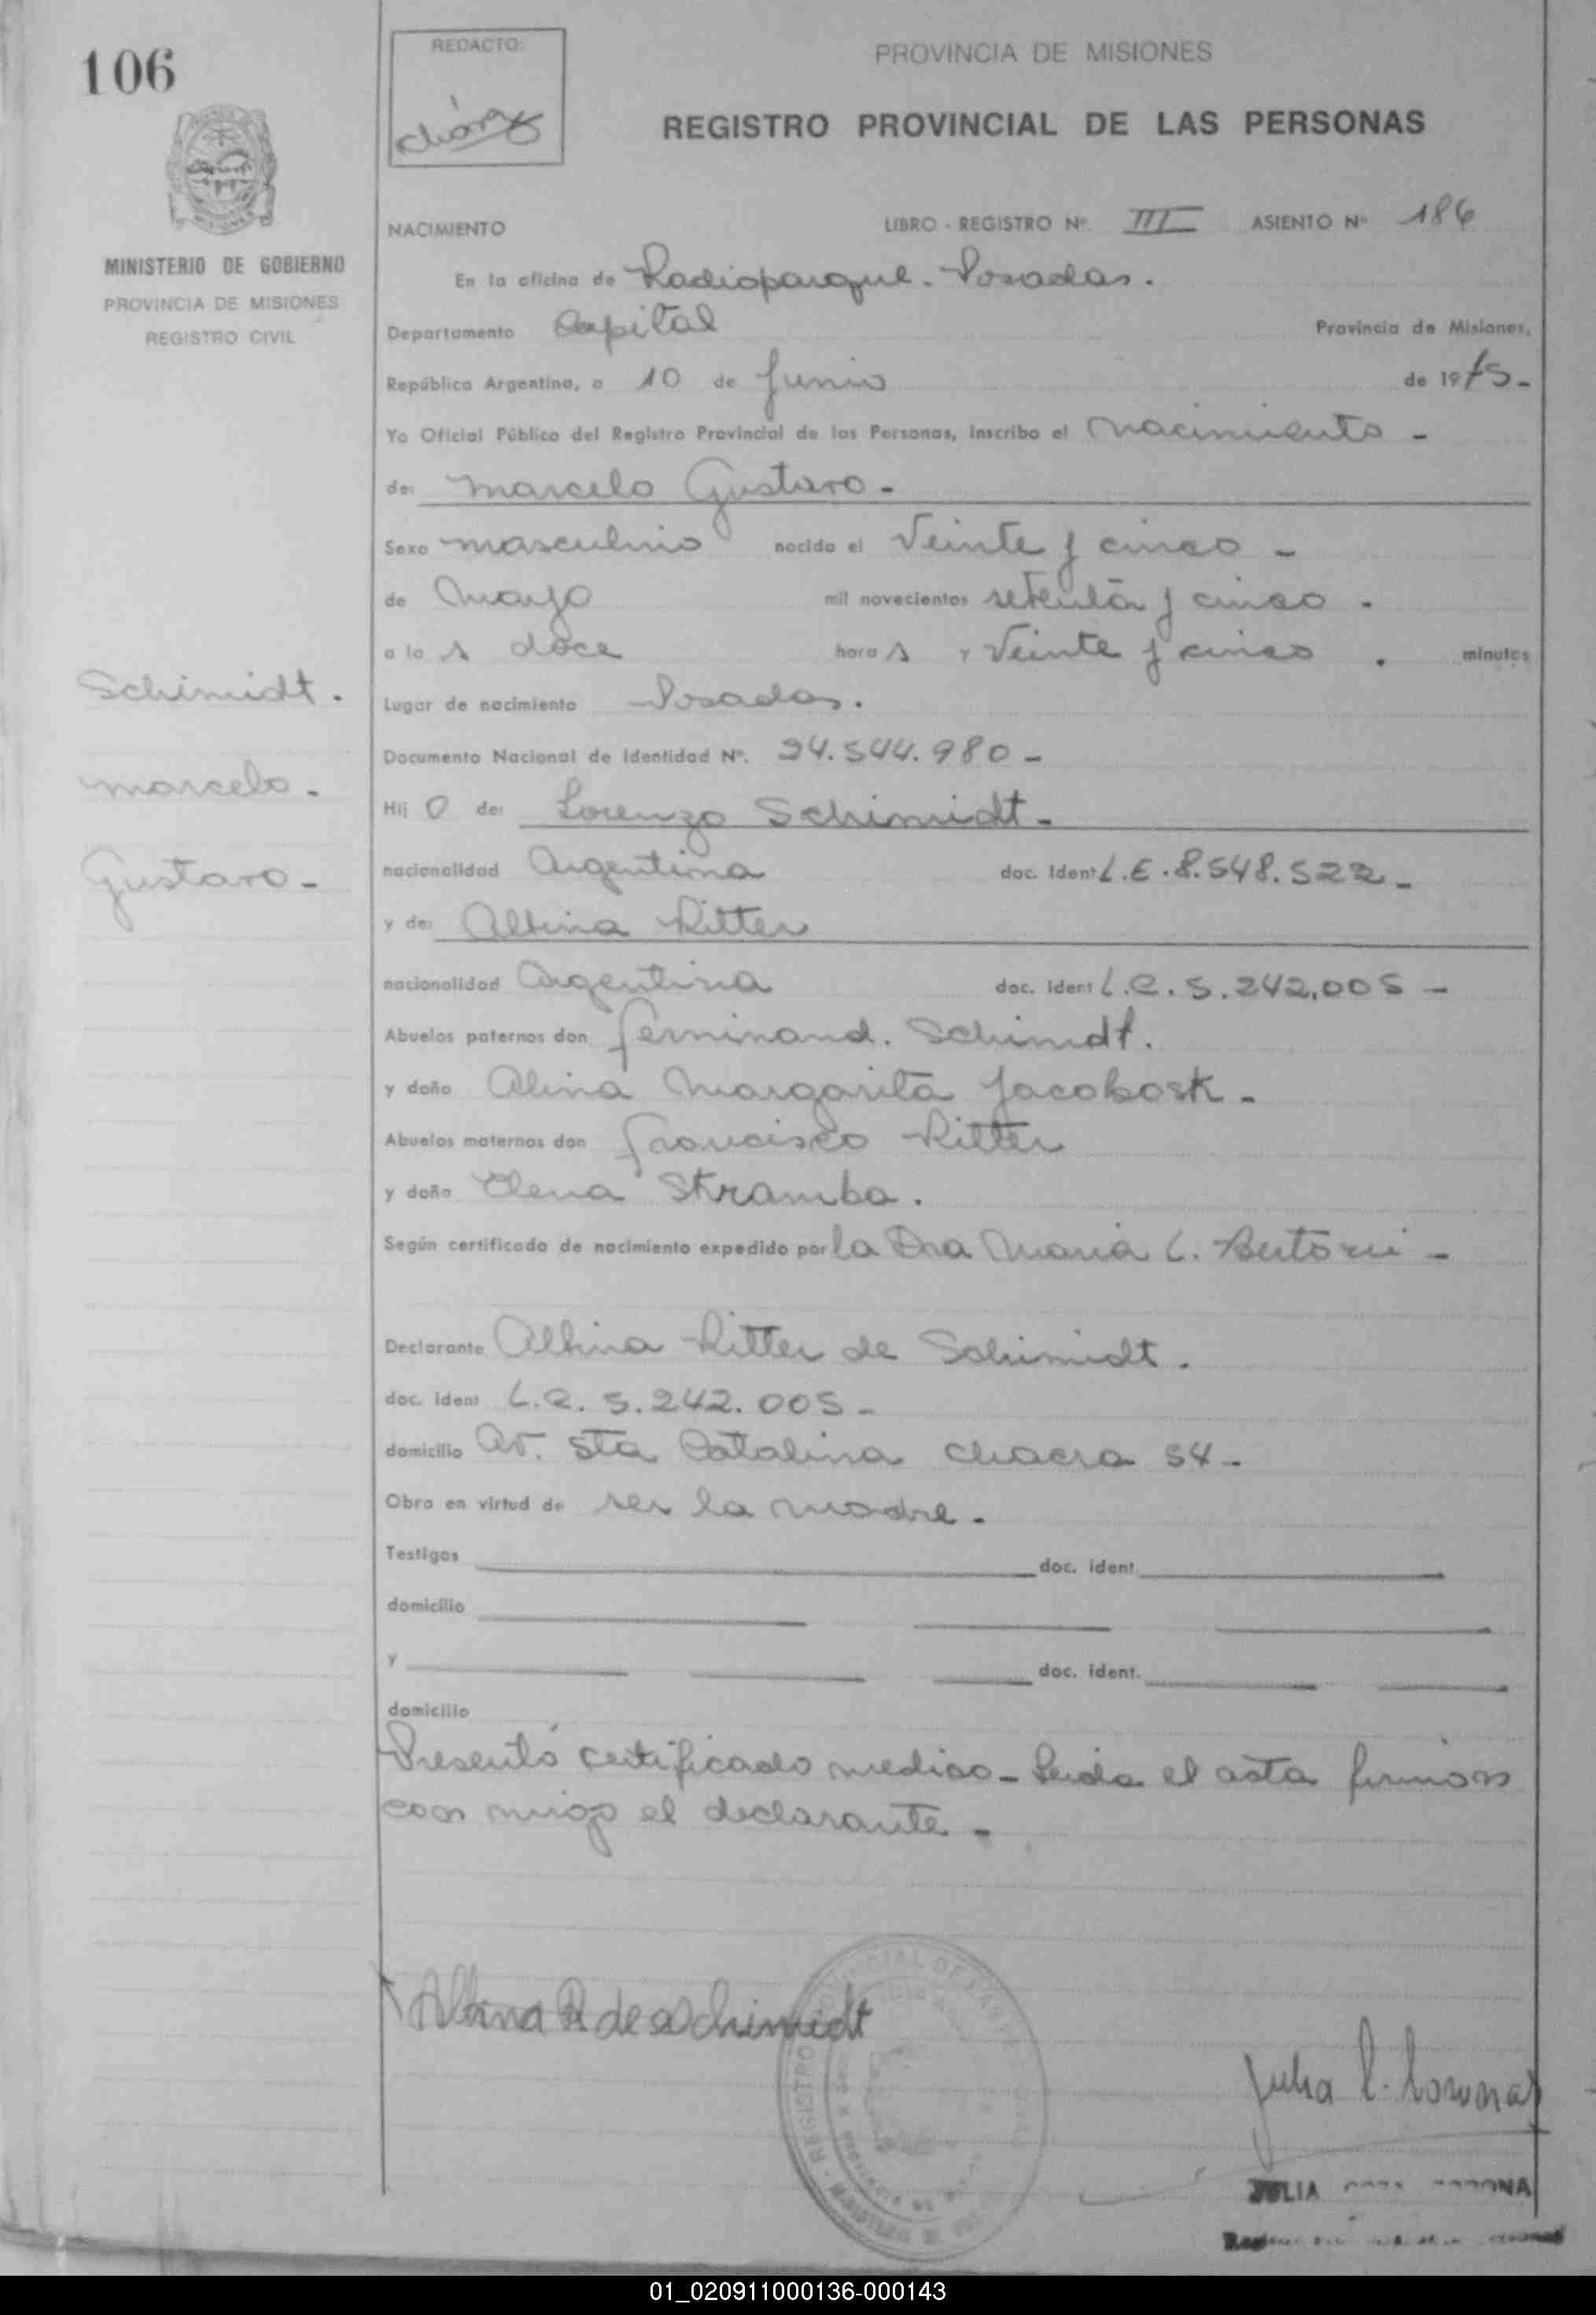 106
REDACTO:
PROVINCIA DE MISIONES
REGISTRO PROVINCIAL DE LAS PERSONAS
MINISTERIO DE GOBIERNO
PROVINCIA DE MISIONES
REGISTRO CIVIL
NACIMIENTO LIBRO - REGISTRO Nº. III ASIENTO Nº 186
En la oficina de Radioparque. Posadas.
Departamento Capital Provincia de Misiones,
República Argentina, a 10 de Junio de 1975-
Yo Oficial Público del Registro Provincial de las Personas, inscribo el Nacimiento -
de: Marcelo Gustavo-
Sexo masculino nacido el Veinte y cinco -
de Mayo mil novecientos setenta y cinco .
a la s doce hora s y Veinte y cinco . minutos
Schimidt.
Lugar de nacimiento Posadas.
Documento Nacional de Identidad Nº. 24.544.980-
Marcelo-
Hij o de: Lorenzo Schimidt-
Gustavo-
nacionalidad Argentina doc. Ident L.E.8.548.522-
y de: Albina Ritter
nacionalidad Argentina doc. Ident L.C.5.242.005-
Abuelos paternos don Ferninand. Schimdt.
y doña Alina Margarita Jacobosk-
Abuelos maternos don Francisco Ritter
y doña Elena Stramba.
Según certificado de nacimiento expedido por la Dra Maria L.
Declarante Albina Ritter de Schimidt.
doc. ident L.C. 5.242.005-
domicilio Av. Sta Catalina chacra 54-
Obra en virtud de ser la madre.
Testigos doc. ident.
domicilio
y doc. ident.
domicilio
Presentó certificado medico- Leida el acta firman
con migo el declarante-
Albina R de Schimidt
REGISTRO
JULIA
01_020911000136-000143